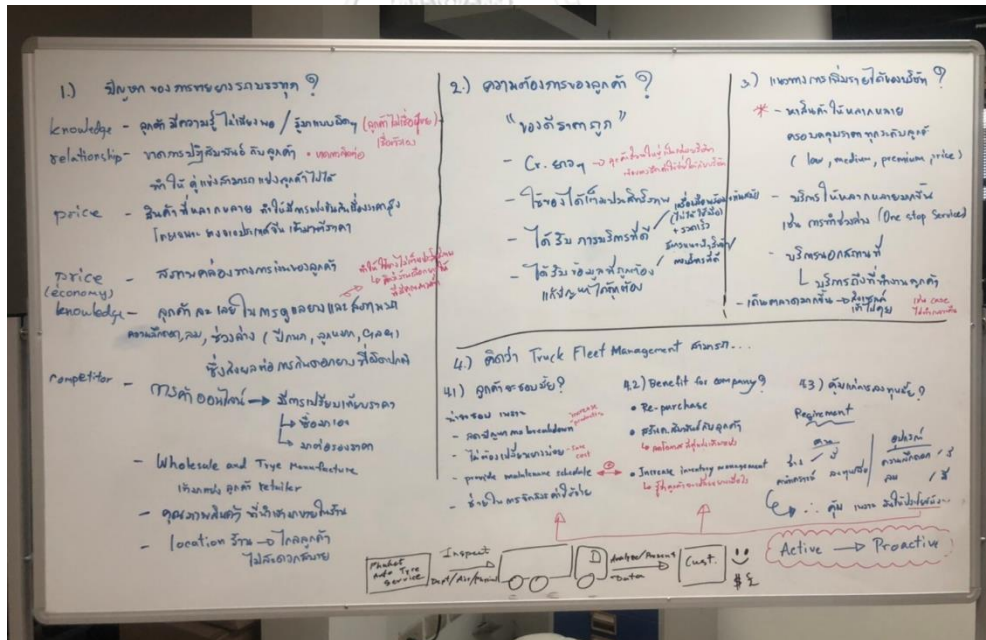 1.) ปัญหา ของ การขายยางรถบรรทุก ?
knowledge - ลูกค้า มีความรู้ ไม่เพียงพอ / รู้มาแบบผิดๆ (ลูกค้าไม่เชื่อผู้ขาย)
เชื่อตัวเอง
relationship - ขาดการปฏิสัมพันธ์ กับลูกค้า • ขาดการติดต่อ
ทำให้ คู่แข่งสามารถ แย่งลูกค้าไปได้
price - สินค้าที่หลากหลาย ทำให้มีการแข่งขันกันเรื่องราคาสูง
price (economy) - สภาพคล่องทางการเงินของลูกค้า
knowledge - ลูกค้า ละเลยในการดูแลยางและ
ความลึกดอก, ลม, ช่วงล่าง (ปีกนก, ลูกหมาก,
ซึ่งส่งผลต่อ การกินดอกยาง ที่ผิดปกติ
competitor - การค้า ออนไลน์ → มีการเปรียบเทียบราคา
↳ ซื้อมาเอง
↳ มาต่อรองราคา
- Wholesale and Tyre Manufacture
เข้ามาแย่ง ลูกค้า Retailer
- คุณภาพสินค้า ที่นำเข้ามาขายในร้าน
- location ร้าน → ไกลลูกค้า
ไม่สะดวกสบาย
2.) ความต้องการของลูกค้า ?
"ของดีราคาถูก"
- Cr. ยาวๆ
- ใช้ของได้เต็มประสิทธิภาพ
- ได้รับ การบริการที่ดี
+ รวดเร็ว
- ได้รับ ข้อมูลที่ถูกต้อง
แก้ปัญหาได้ถูกต้อง
3.) แนวทางการเพิ่มรายได้ของบริษัท ?
* - หาสินค้าให้หลากหลาย
ครอบคลุมราคา ทุกระดับลูกค้า
(low, medium, premium price)
- บริการให้หลากหลายมากขึ้น
เช่น การทำช่วงล่าง (One stop Service)
- บริการนอกสถานที่
↳ บริการถึงที่ทำงานลูกค้า
- เดินตลาดมากขึ้น →
4.) คิดว่า Truck Fleet Management สามารถ...
4.1) ลูกค้าจะชอบมั้ย?
น่าจะชอบ เพราะ
- ลดปัญหาการ breakdown increase
- ไม่ต้องเปลี่ยนยางบ่อย - save cost
- provide maintenance schedule
- ช่วยในการจัดสรรค่าใช้จ่าย
4.2) Benefit for company?
• Re-purchase
• สร้างสัมพันธ์กับลูกค้า
• Increase inventory management
4.3) คุ้มแก่การลงทุนมั้ย?
Reqirement
คน
อุปกรณ์
ช่าง / มี
ความลึกดอก / มี
ลม / มี
↳ ∴ คุ้ม เพราะ
Active → Proactive
Phuket Auto Tyre Service
Inspect
D
Analyse/Process
Data
Cust.
$ £